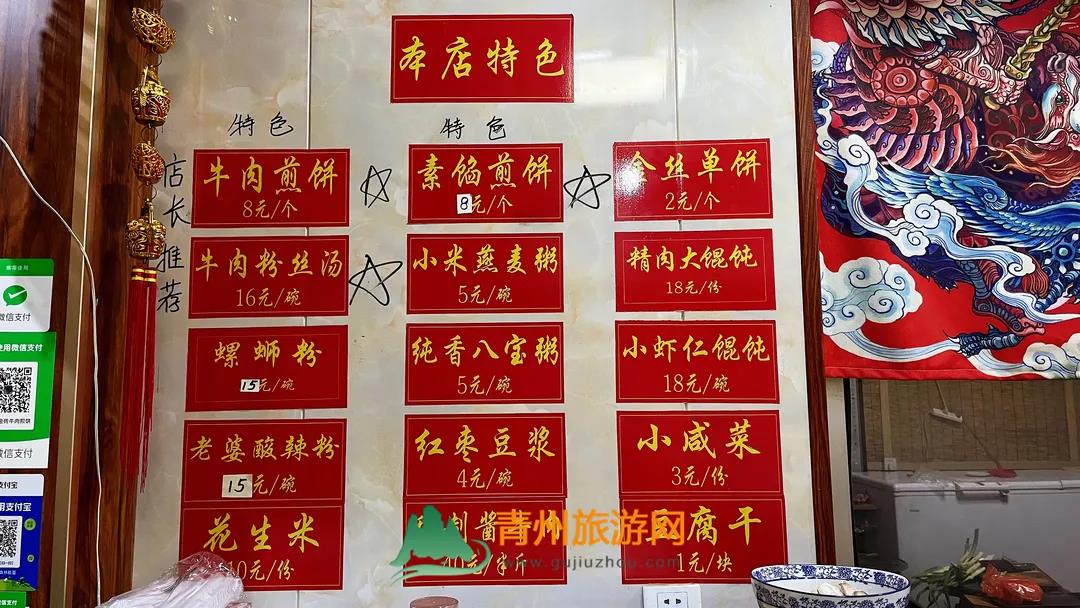 本店特色
特色
特色
店长推荐
牛肉煎饼
8元/个
素馅煎饼
8元/个
金丝单饼
2元/个
牛肉粉丝汤
16元/碗
小米燕麦粥
5元/碗
精肉大馄饨
18元/份
螺蛳粉
15元/碗
纯香八宝粥
5元/碗
小虾仁馄饨
18元/碗
老婆酸辣粉
15元/碗
红枣豆浆
4元/碗
小咸菜
3元/份
花生米
10元/份
制酱牛肉
40元/半斤
腐干
1元/块
青州旅游网
www.gujiuzhou.com
微信支付
使用微信支付
微信支付
支付宝
用支付宝